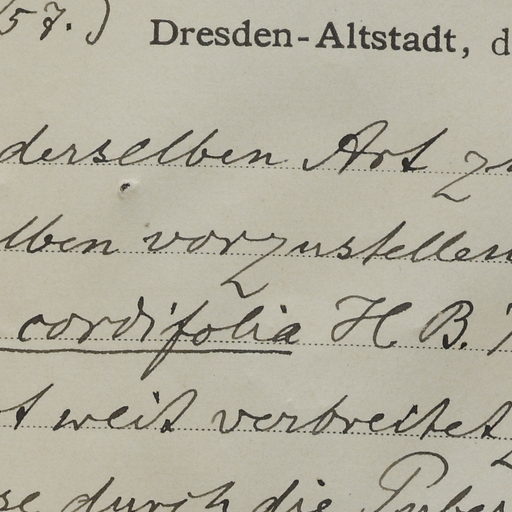 57.) Dresden-Altstadt, d
derselben Art z
lben vorzustellen
cordifolia H. B.
t weit verbreitet
se durch die